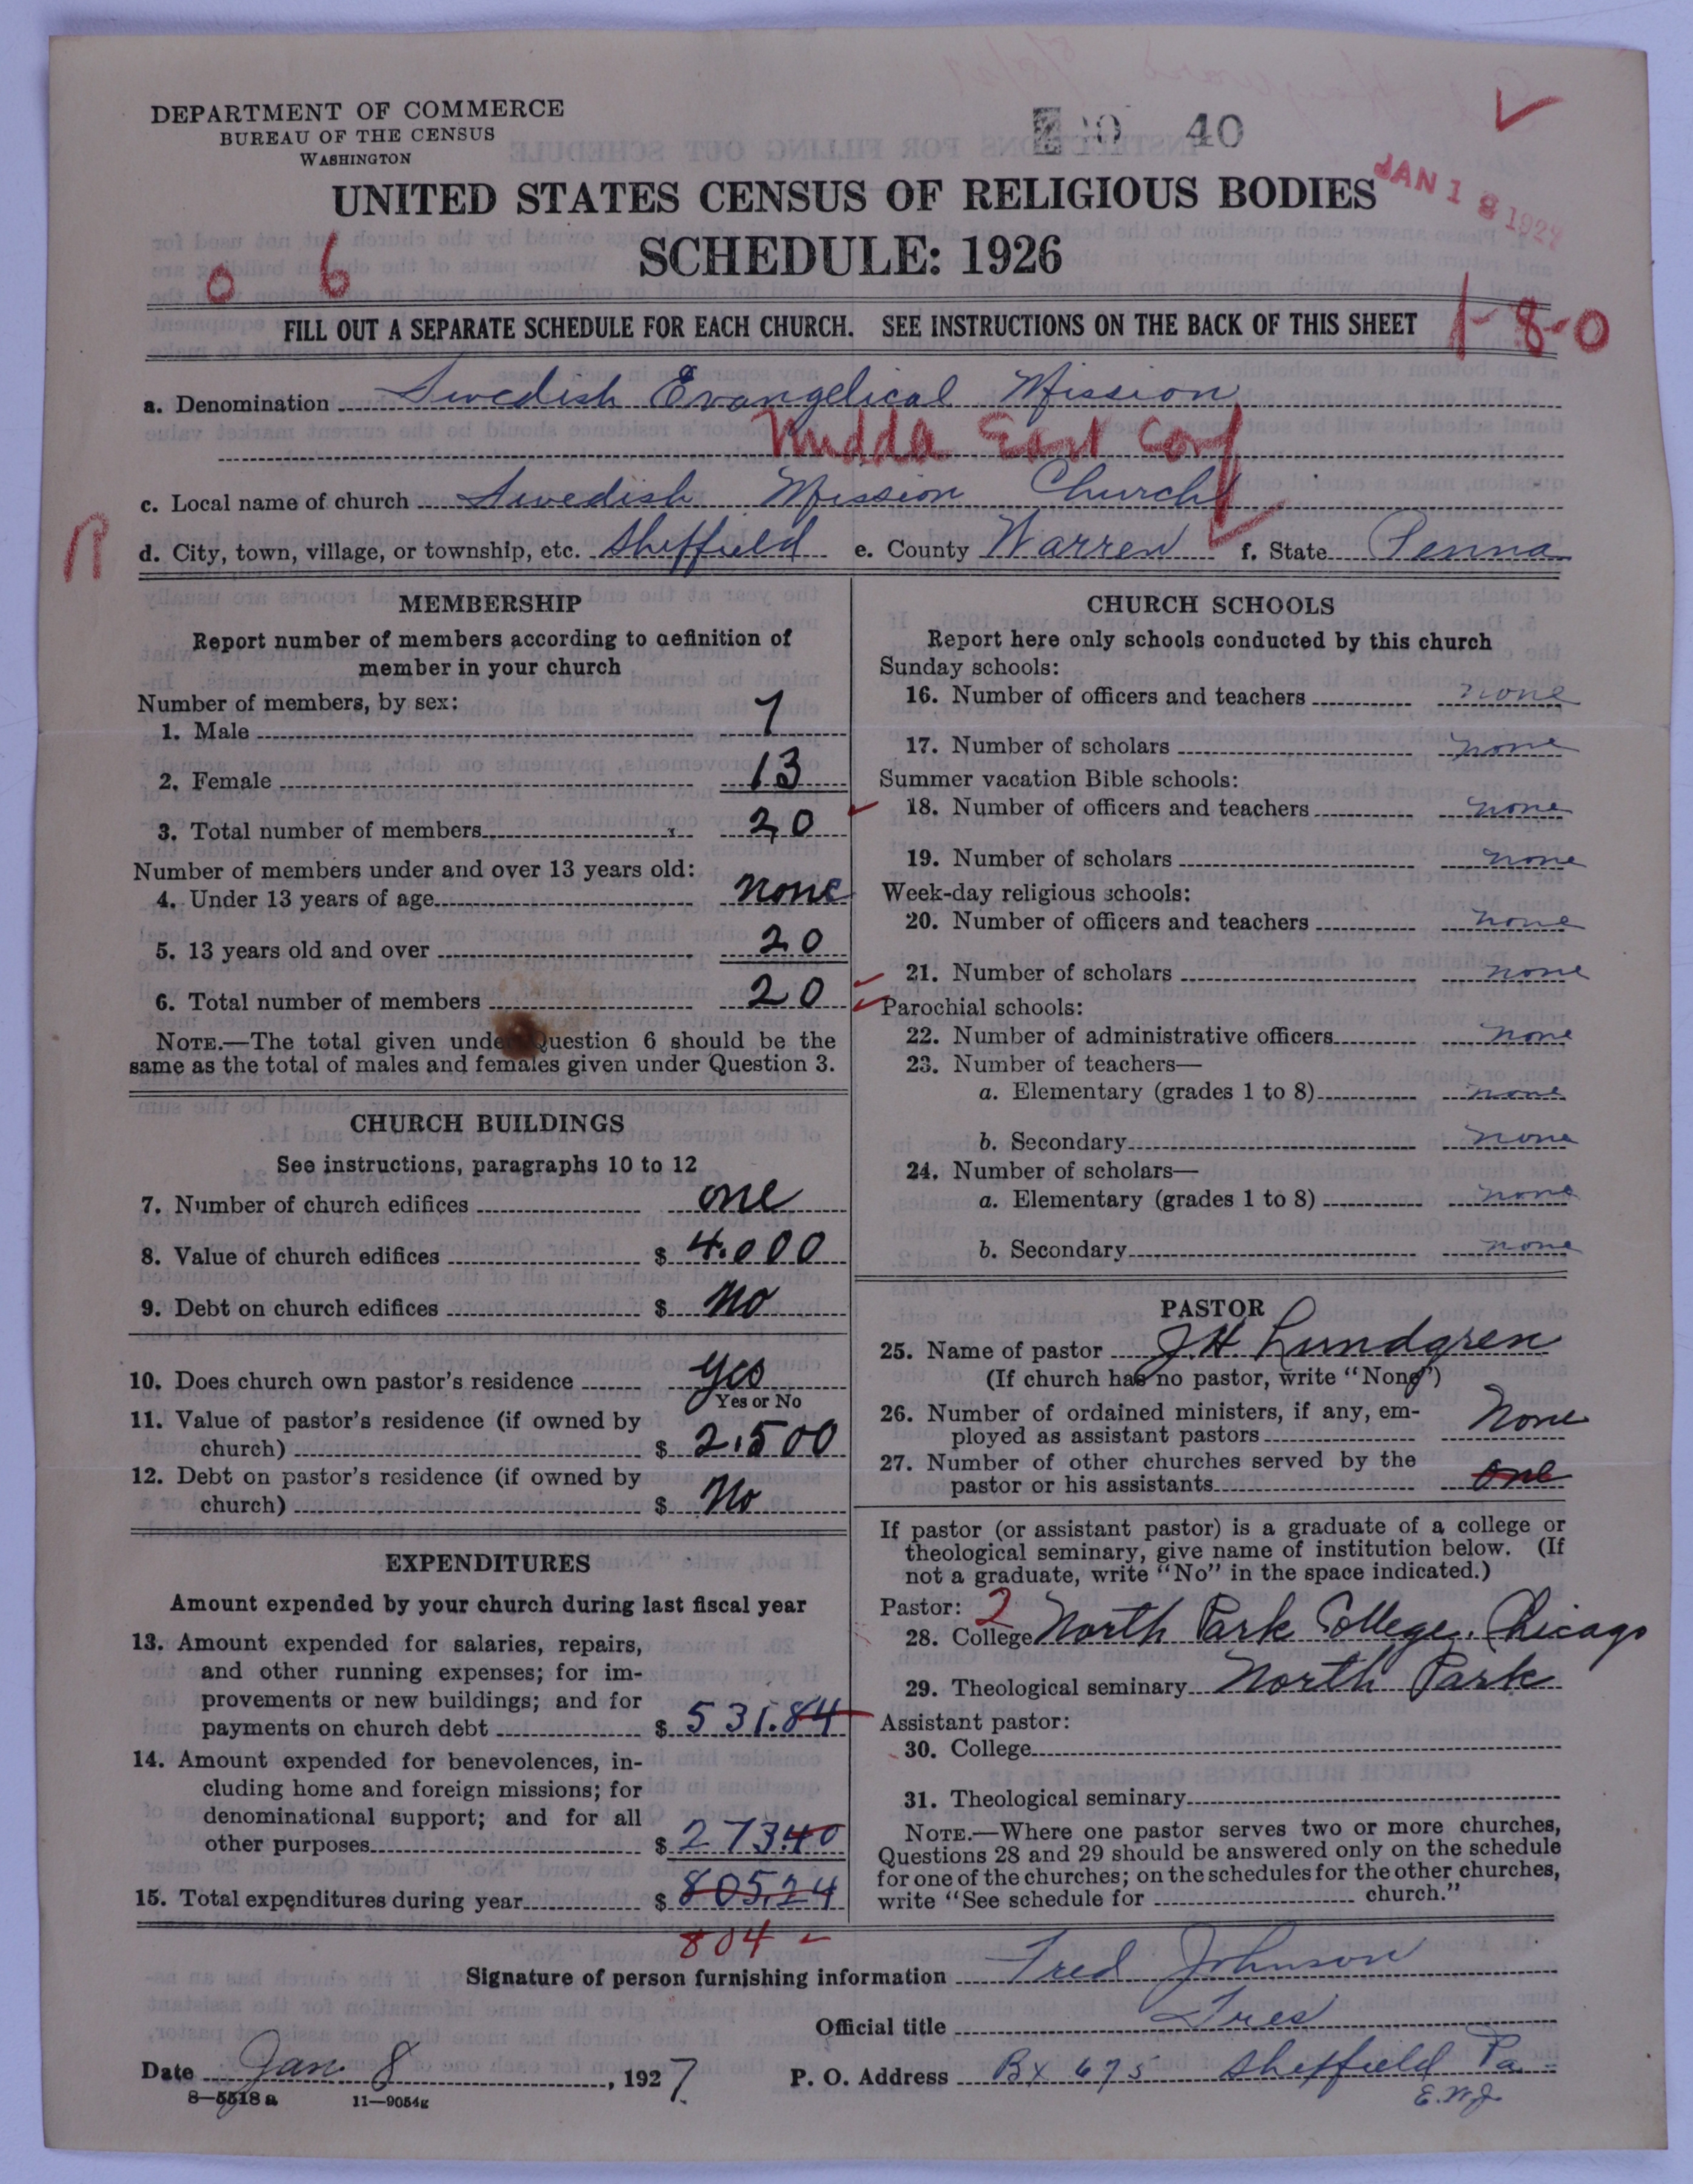 DEPARTMENT OF COMMERCE
BUREAU OF THE CENSUS
WASHINGTON
40
JAN 18 1927
UNITED STATES CENSUS OF RELIGIOUS BODIES
SCHEDULE: 1926
o 6
FILL OUT A SEPARATE SCHEDULE FOR EACH CHURCH. SEE INSTRUCTIONS ON THE BACK OF THIS SHEET
1-8-0
a. Denomination Swedish Evangelical Mission
East Conf
c. Local name of church Swedish Mission Church
d. City, town, village, or township, etc. Sheffield e. County Warren f. State Penna
R
MEMBERSHIP
Report number of members according to definition of
member in your church
Number of members, by sex:
1. Male 7
2. Female 13
3. Total number of members 20
Number of members under and over 13 years old:
4. Under 13 years of age none
5. 13 years old and over 20
6. Total number of members 20
NOTE.—The total given under Question 6 should be the
same as the total of males and females given under Question 3.
CHURCH BUILDINGS
See instructions, paragraphs 10 to 12
7. Number of church edifices one
8. Value of church edifices $ 4.000
9. Debt on church edifices $ No
10. Does church own pastor's residence yes
Yes or No
11. Value of pastor's residence (if owned by
church) $ 2.500
12. Debt on pastor's residence (if owned by
church) $ No
EXPENDITURES
Amount expended by your church during last fiscal year
13. Amount expended for salaries, repairs,
and other running expenses; for im-
provements or new buildings; and for
payments on church debt $ 531.84
14. Amount expended for benevolences, in-
cluding home and foreign missions; for
denominational support; and for all
other purposes $ 273.40
15. Total expenditures during year $ 805.24
804
CHURCH SCHOOLS
Report here only schools conducted by this church
Sunday schools:
16. Number of officers and teachers none
17. Number of scholars none
Summer vacation Bible schools:
18. Number of officers and teachers none
19. Number of scholars none
Week-day religious schools:
20. Number of officers and teachers none
21. Number of scholars none
Parochial schools:
22. Number of administrative officers none
23. Number of teachers—
a. Elementary (grades 1 to 8) none
b. Secondary none
24. Number of scholars—
a. Elementary (grades 1 to 8) none
b. Secondary none
PASTOR
25. Name of pastor J.H Lundgren
(If church has no pastor, write "None")
26. Number of ordained ministers, if any, em-
ployed as assistant pastors None
27. Number of other churches served by the
pastor or his assistants one
If pastor (or assistant pastor) is a graduate of a college or
theological seminary, give name of institution below. (If
not a graduate, write "No" in the space indicated.)
Pastor: 2
28. College North Park College. Chicago
29. Theological seminary North Park
Assistant pastor:
30. College
31. Theological seminary
NOTE.—Where one pastor serves two or more churches,
Questions 28 and 29 should be answered only on the schedule
for one of the churches; on the schedules for the other churches,
write "See schedule for church."
Signature of person furnishing information Fred Johnson
Official title Tres
Date Jan 8, 1927 P. O. Address Bx 675 Sheffield Pa
8—5518 a 11—9054g
E.W.J.